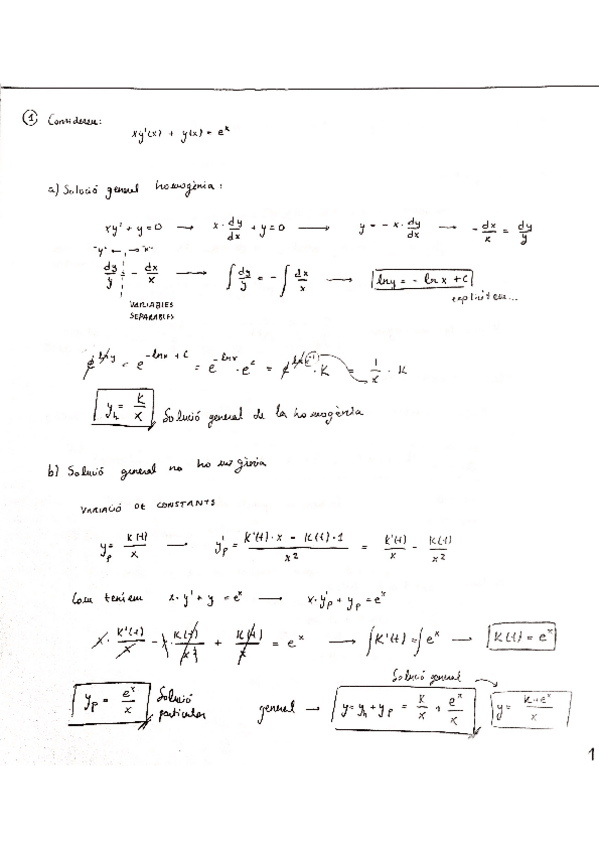 ① Considereu:
xy'(x) + y(x) = e^x
a) Solució general homogènia:
xy' + y = 0 → x · dy/dx + y = 0 → y = - x · dy/dx → - dx/x = dy/y
"y" ← → "x"
dy/y = - dx/x → ∫ dy/y = - ∫ dx/x → ln y = - ln x + C
explicitem...
VARIABLES
SEPARABLES
e^(ln y) = e^(-ln x + C) = e^(-ln x) · e^C = e^(ln x^(-1)) · K = 1/x · K
y_h = K/x Solució general de la homogènia
b) Solució general no homogènia
VARIACIÓ DE CONSTANTS
y_p = K(t)/x → y'_p = (K'(t) · x - K(t) · 1)/x^2 = K'(t)/x - K(t)/x^2
Com teníem x · y' + y = e^x → x · y'_p + y_p = e^x
x · K'(t)/x - x K(t)/x^2 + K(t)/x = e^x → ∫ K'(t) = ∫ e^x → K(t) = e^x
Solució general
y_p = e^x/x Solució particular general → y = y_h + y_p = K/x + e^x/x y = (K + e^x)/x
1